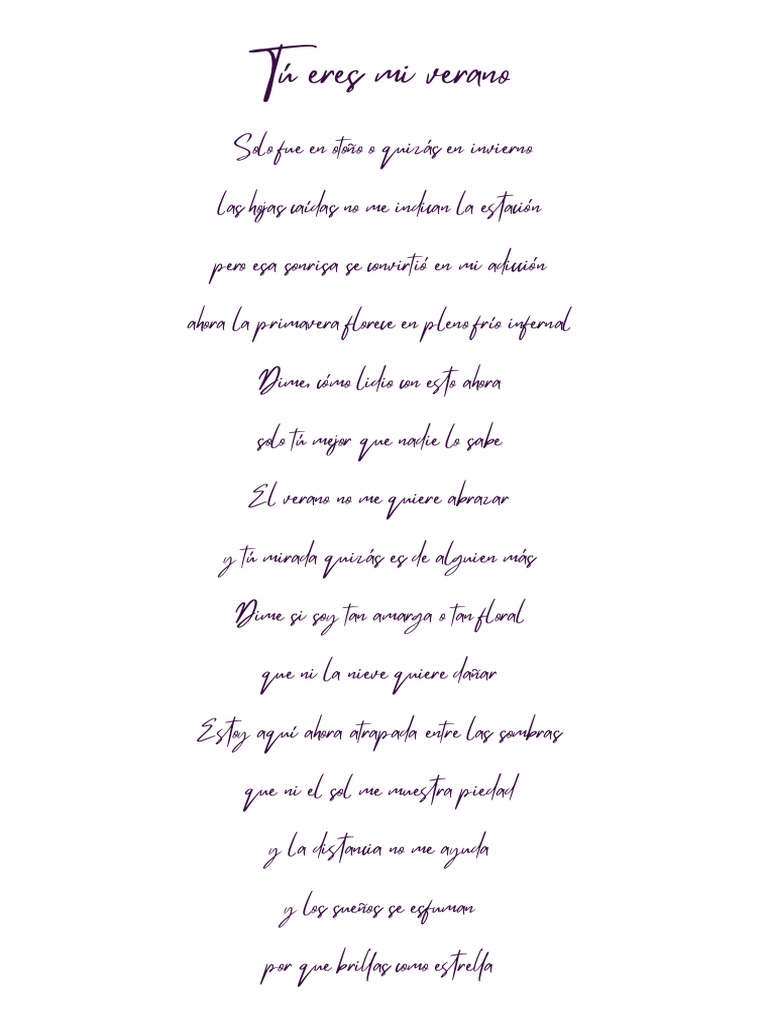 Tú eres mi verano
Solo fue en otoño o quizás en invierno
las hojas caídas no me indican la estación
pero esa sonrisa se convirtió en mi adicción
ahora la primavera florece en pleno frío infernal
Dime, cómo lidio con esto ahora
solo tú mejor que nadie lo sabe
El verano no me quiere abrazar
y tú mirada quizás es de alguien más
Dime si soy tan amarga o tan floral
que ni la nieve quiere dañar
Estoy aquí ahora atrapada entre las sombras
que ni el sol me muestra piedad
y la distancia no me ayuda
y los sueños se esfuman
por que brillas como estrella